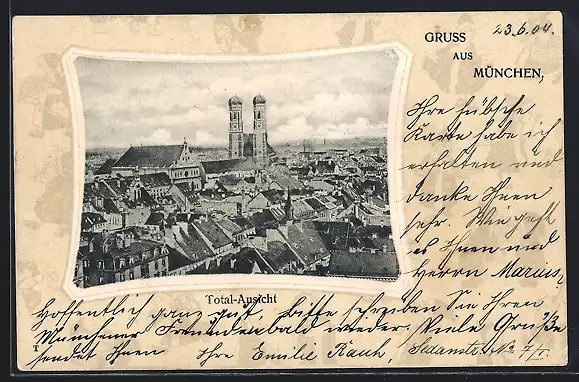 23.6.04.
GRUSS
AUS
MÜNCHEN,
Ihre hübsche
Karte habe ich
erhalten und
danke Ihnen
sehr. Wie geht
es Ihnen und
Herrn Marius,
Total-Ansicht
Hoffentlich ganz gut. Bitte schreiben Sie Ihren
Münchener Freunden bald wieder. Viele Grüße
T
sendet Ihnen Ihre Emilie Rauh, No 7/I.